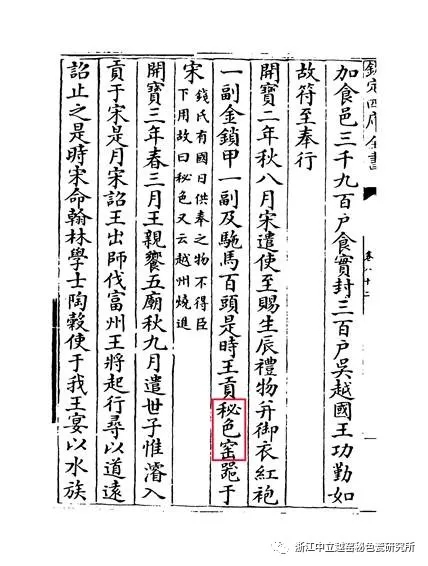 欽定四庫全書
卷八十二
加食邑三千九百户食實封三百户吳越國王功勤如
故符至奉行
開寶二年秋八月宋遣使至賜生辰禮物并御衣紅袍
一副金鎖甲一副及駞馬百頭是時王貢秘色窑噐于
宋
錢氏有國日供奉之物不得臣
下用故曰秘色又云越州燒進
開寶三年春三月王親饗五廟秋九月遣世子惟濬入
貢于宋是月宋詔王出師伐富州王將起行尋以道遠
詔止之是時宋命翰林學士陶榖使于我王宴以水族
浙江中立越窑秘色瓷研究所